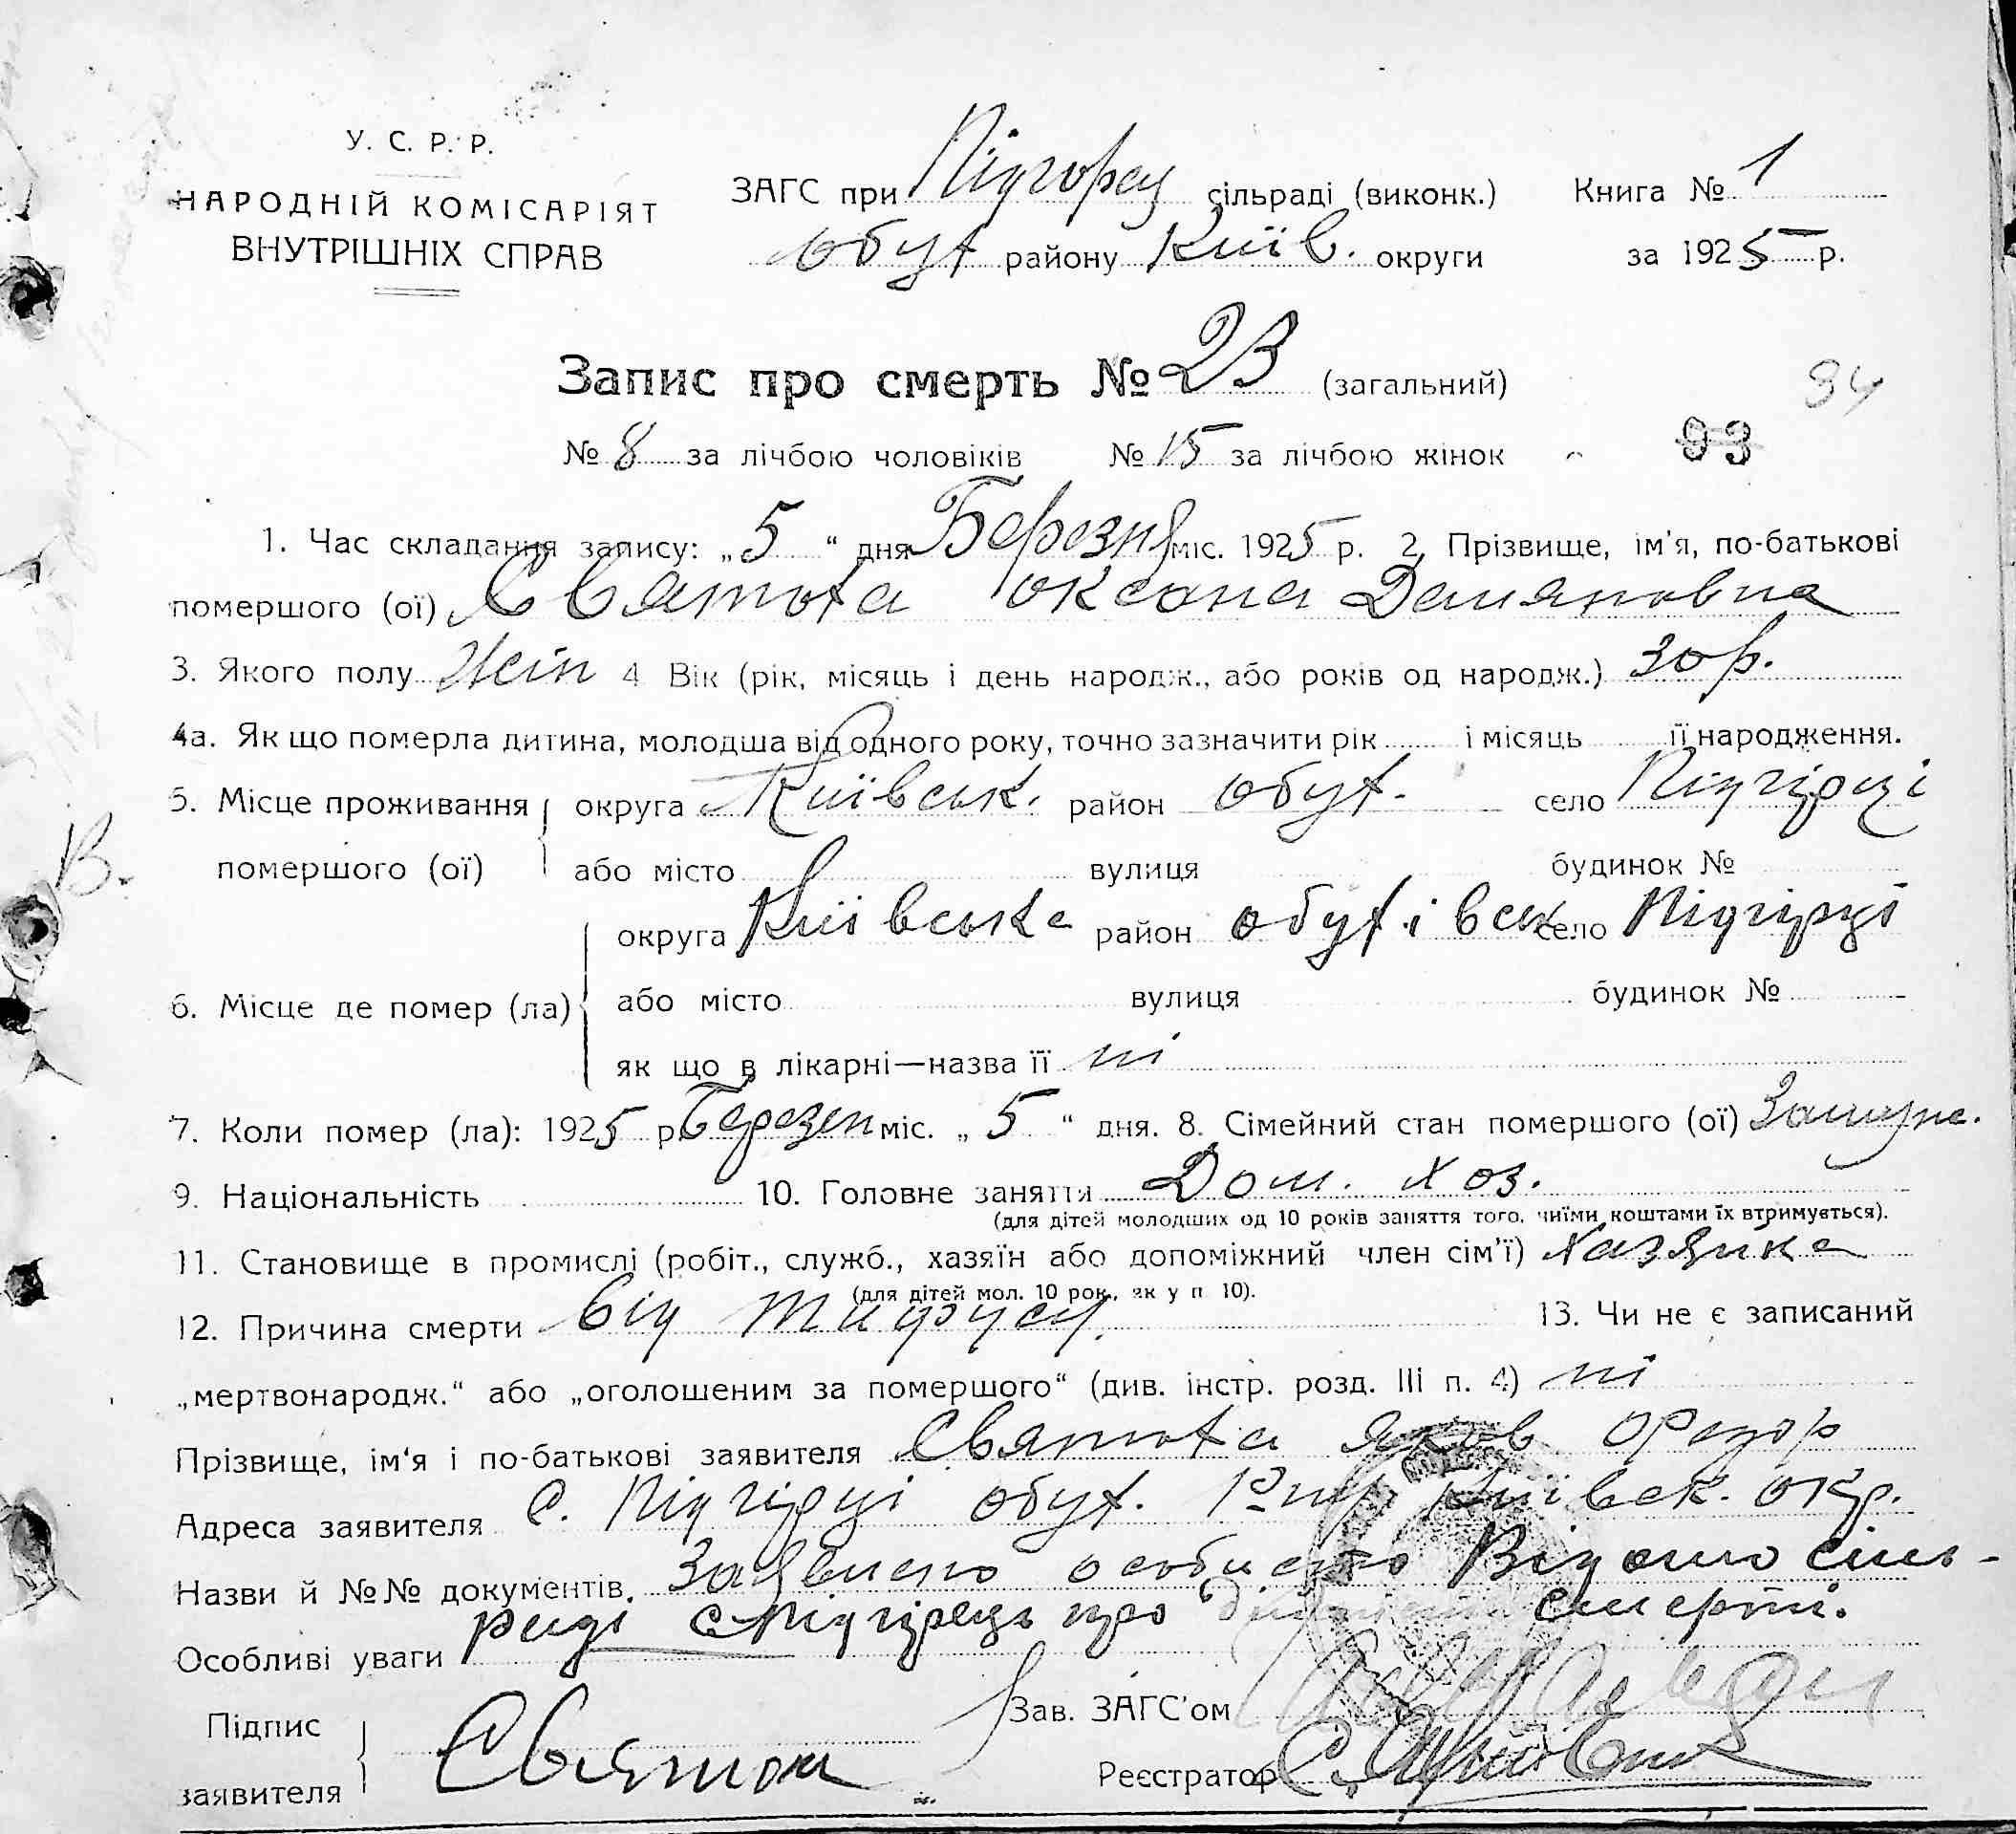 У. С. Р. Р.
НАРОДНІЙ КОМІСАРІЯТ
ВНУТРІШНІХ СПРАВ
ЗАГС при Підгорец сільраді (виконк.) Книга № 1
Обух району Київ. округи за 1925 р.
Запис про смерть № 23 (загальний)
34
№ 8 за лічбою чоловіків № 15 за лічбою жінок 93
1. Час складання запису: „5“ дня Березня міс. 1925 р. 2. Прізвище, ім'я, по-батькові
помершого (ої) Святоха Оксана Демяновна
3. Якого полу Жін 4 Вік (рік, місяць і день народж., або років од народж.) 30 р.
4а. Як що померла дитина, молодша від одного року, точно зазначити рік і місяць її народження.
5. Місце проживання округа Київськ. район Обух. село Підгірці
помершого (ої) або місто вулиця будинок №
округа Київська район Обухівськ село Підгірці
6. Місце де помер (ла) або місто вулиця будинок №
як що в лікарні—назва її ні
7. Коли помер (ла): 1925 р. Березен міс. „5“ дня. 8. Сімейний стан помершого (ої) Замужн.
9. Національність 10. Головне заняття Дом. хоз.
(для дітей молодших од 10 років заняття того, чиїми коштами їх втримується).
11. Становище в промислі (робіт., служб., хазяїн або допоміжний член сім'ї) Хазяйка
(для дітей мол. 10 рок., як у п. 10).
12. Причина смерти Від тифусу. 13. Чи не є записаний
„мертвонародж.“ або „оголошеним за помершого“ (див. інстр. розд. III п. 4) ні
Прізвище, ім'я і по-батькові заявителя Святоха Яков Федор
Адреса заявителя с. Підгірці Обух. Київск. окр.
Назви й №№ документів. Заявлено особисто Відомо сіль-
раді с Підгірець про смерті.
Особливі уваги
Підпис Зав. ЗАГС'ом
заявителя Святоха Реєстратор
В.